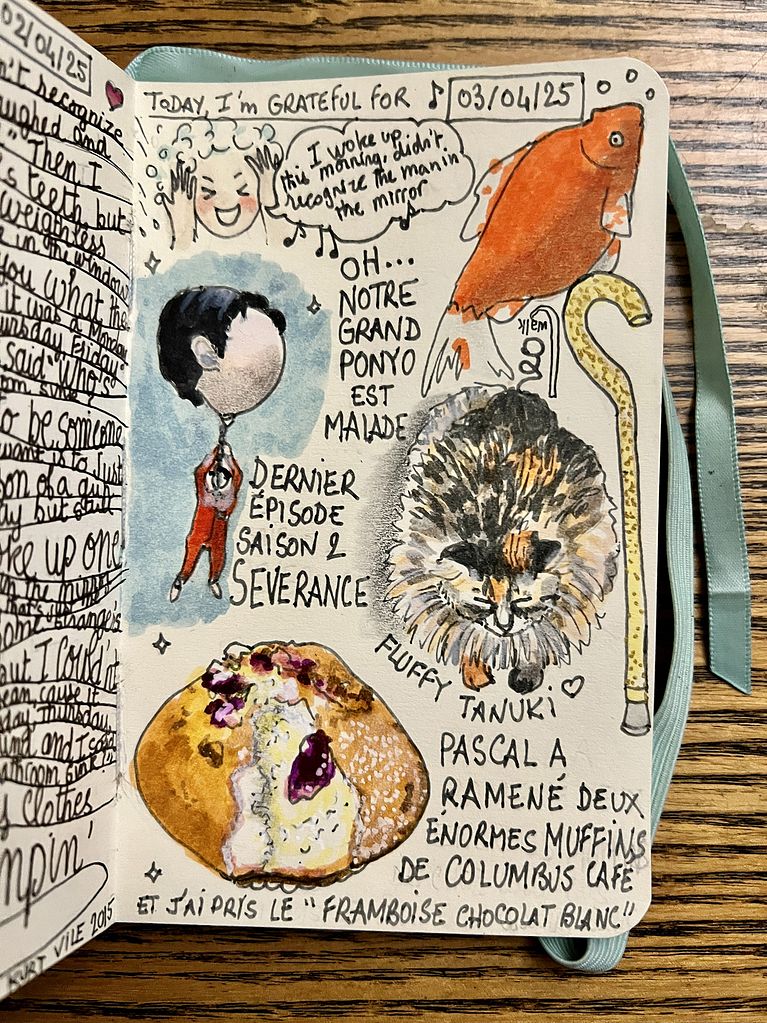 02/04/25
n't recognize
ughed and
"Then I
s teeth but
weightless
in the window
you what the
it was a Monday
ursday Friday"
said "Who's
to be someone
want is to just
son of a gun
ay but still
ke up one
in the
that's
some stranger's
but I could'nt
cause it
day, Thursday,
and I said
bathroom sink?"
clothes
mpin'
KURT VILE 2015
TODAY, I'm GRATEFUL FOR
03/04/25
I woke up
this morning, didn't
recognize the man in
the mirror
OH...
NOTRE
GRAND
PONYO
EST
MALADE
walk
DERNIER
ÉPISODE
SAISON 2
SEVERANCE
FLUFFY TANUKI
PASCAL A
RAMENÉ DEUX
ÉNORMES MUFFINS
DE COLUMBUS CAFÉ
ET J'AI PRIS LE "FRAMBOISE CHOCOLAT BLANC"